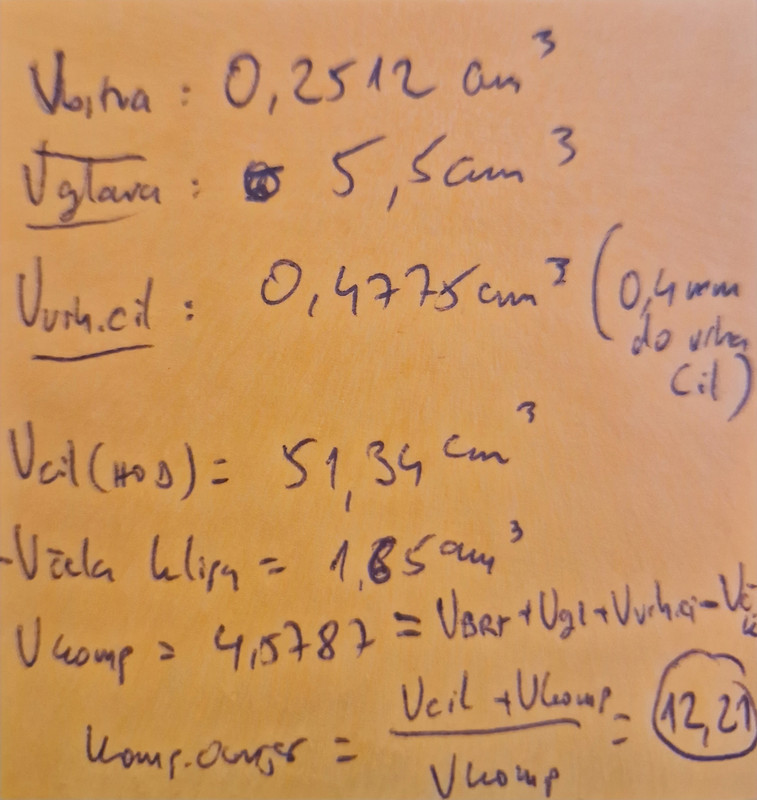 Vbrtva : 0,2512 cm³
Vglava : 5,5cm³
Vvrh.cil : 0,4775cm³ (0,4mm
do vrha
cil)
Vcil(HOD) = 51,34 cm³
-Včela klipa = 1,65cm³
Vkomp = 4,5787 = VBRT+Vgl+Vvrh.ci-Vč
komp.omjer = Vcil + Vkomp / Vkomp = 12,21